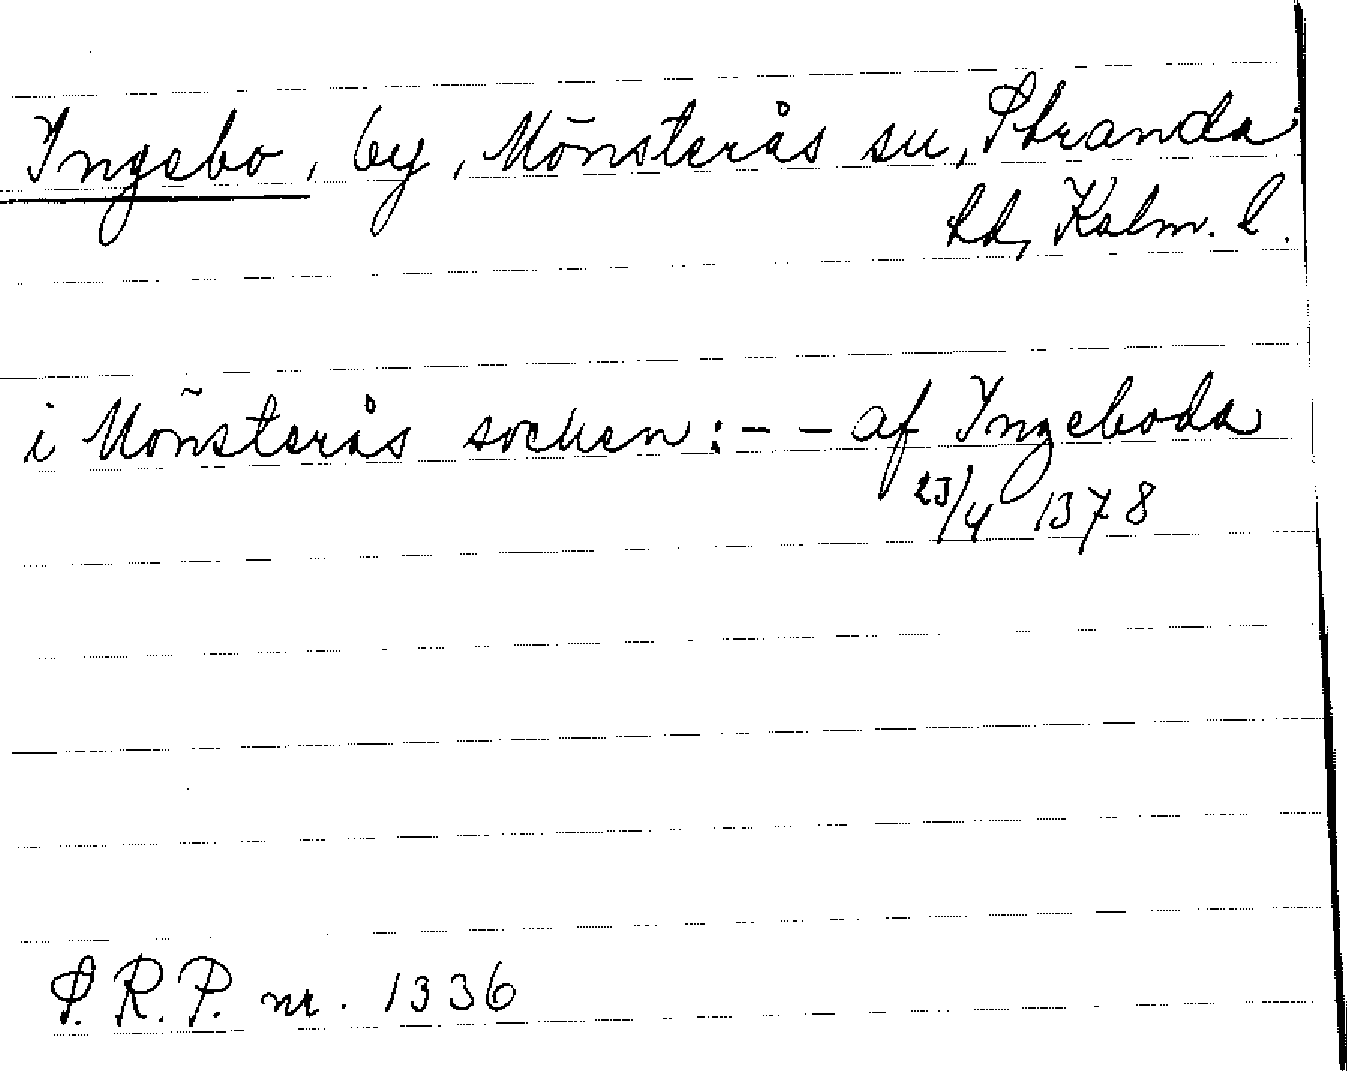 Ingebo, by, Mönsterås sn, Stranda
hd, Kalm. l.
i Mönsterås socken: - - af Ingeboda
23/4 1378
S. R. P. nr. 1336